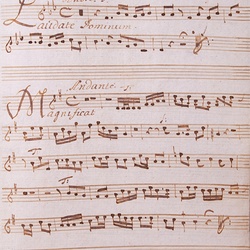 Laudate Dominum
Andante
Magnificat